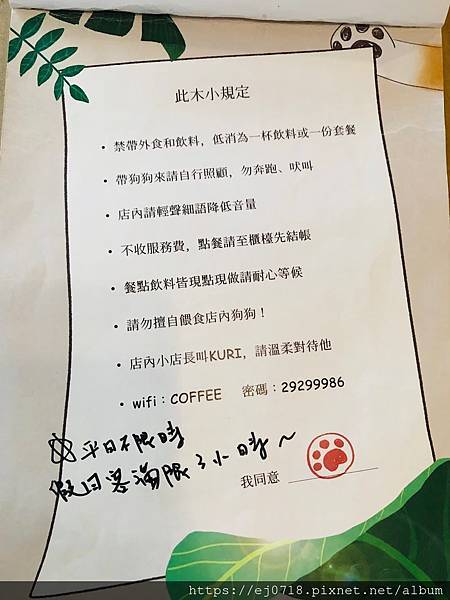 此木小規定
• 禁帶外食和飲料，低消為一杯飲料或一份套餐
• 帶狗狗來請自行照顧，勿奔跑、吠叫
• 店內請輕聲細語降低音量
• 不收服務費，點餐請至櫃檯先結帳
• 餐點飲料皆現點現做請耐心等候
• 請勿擅自餵食店內狗狗！
• 店內小店長叫KURI，請溫柔對待他
• wifi：COFFEE 密碼：29299986
平日不限時
假日客滿限3小時～
我同意
https://ej0718.pixnet.net/album